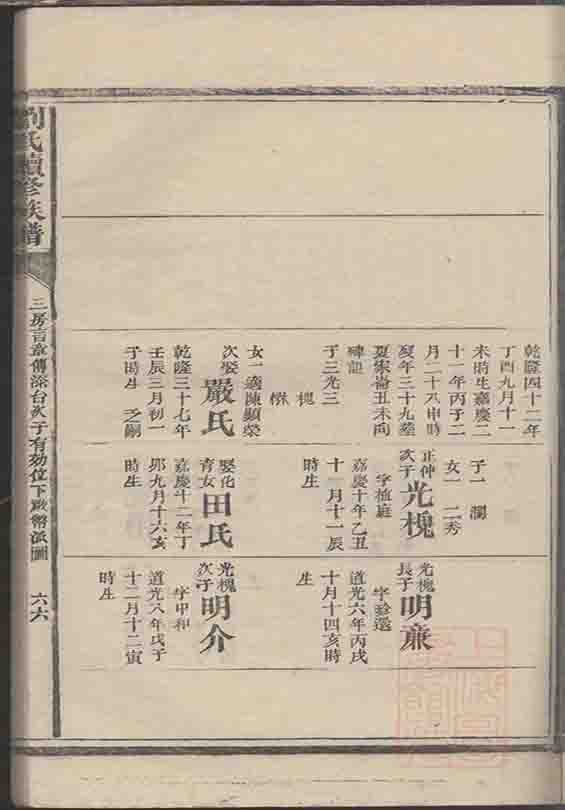 劉氏續修族譜
三房言章傳添台次子有効位下啟懈派圖
六六
乾隆四十二年
丁酉九月十一
未時生嘉慶二
十一年丙子二
月二十八申時
歿年三十九葬
夏家崙丑未向
碑記
子三光三
槐
樹
女一適陳顯榮
次娶
嚴氏
乾隆三十七年
壬辰三月初一
子時生 之嗣
子一 瀾
女一 二秀
正仲
次子
光槐
字植庭
嘉慶十年乙丑
十一月十一辰
時生
娶化
育女
田氏
嘉慶十二年丁
卯九月十六亥
時生
光槐
長子
明亷
字
道光六年丙戌
十月十四亥時
生
光槐
次子
明介
字甲和
道光八年戊子
十二月十二寅
時生